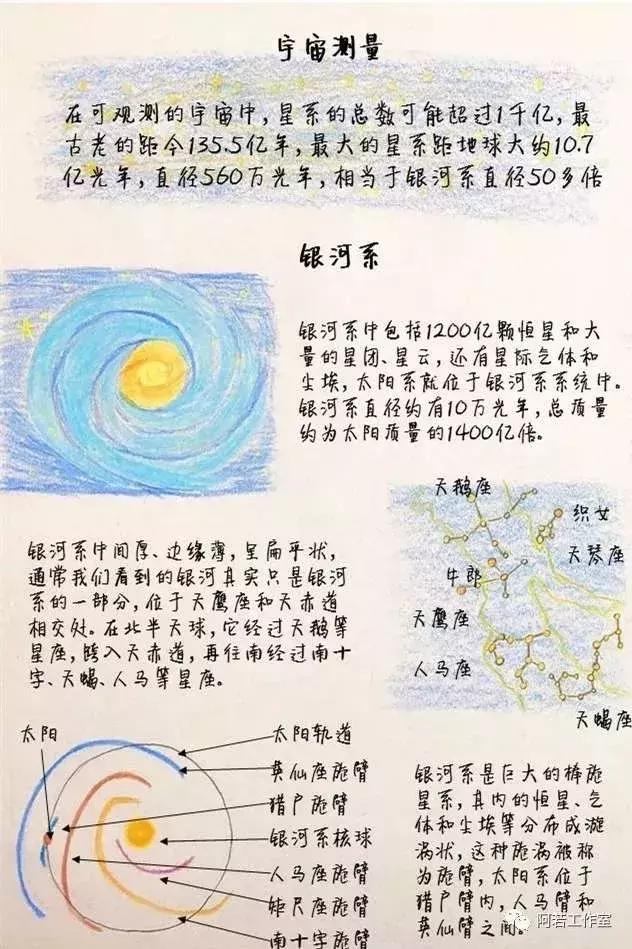 宇宙测量
在可观测的宇宙中,星系的总数可能超过1千亿,最
古老的距今135.5亿年,最大的星系距地球大约10.7
亿光年,直径560万光年,相当于银河系直径50多倍
银河系
银河系中包括1200亿颗恒星和大
量的星团、星云,还有星际气体和
尘埃,太阳系就位于银河系系统中。
银河系直径约有10万光年,总质量
约为太阳质量的1400亿倍。
天鹅座
织女
天琴座
牛郎
天鹰座
人马座
天蝎座
银河系中间厚、边缘薄,呈扁平状,
通常我们看到的银河其实只是银河
系的一部分,位于天鹰座和天赤道
相交处。在北半天球,它经过天鹅等
星座,跨入天赤道,再往南经过南十
字、天蝎、人马等星座。
太阳
太阳轨道
英仙座旋臂
猎户旋臂
银河系核球
人马座旋臂
矩尺座旋臂
南十字旋臂
银河系是巨大的棒旋
星系,其内的恒星、气
体和尘埃等分布成漩
涡状,这种旋涡被称
为旋臂,太阳系位于
猎户臂内,人马臂和
英仙臂之间。
阿若工作室